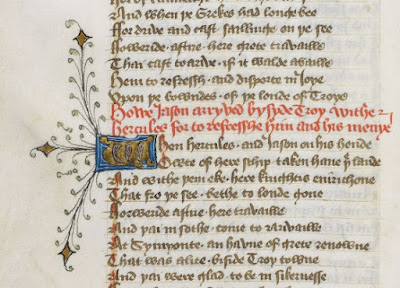 And when þe Grekes had longe bee
Fordrive and cast sailinge on þe see
Foweride aftir here grete travaille
Thei cast to arive if it walde availle
Hem to refressh and disporte in Joye
Upon þe bowndes of þe londe of Troye
Howe Jason arryved bysyde Troy withe
Hercules for to refresshe him and his menye
When Hercules and Jason on his honde
Owte of here schip taken have þe lande
And withe þem eke here knightes everichone
That fro þe see bethe to londe gone
Forweride aftir here travaille
And þai in sothe come to arrivaille
At Symponte an havne of grete renowne
That was alite biside Troy towne
And þai were glad to be in sikernesse